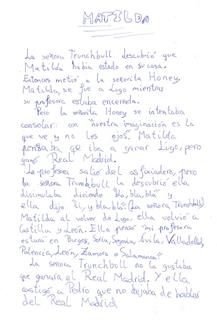 MATILDA
La señora Trunchbull descubrió que
Matilda había estado en su casa.
Entonces metió a la señorita Honey,
Matilda, se fue a Lugo mientras
su profesora estaba encerrada.
Pero la señorita Honey se intentaba
consolar: con nuestra imaginación es la
que ve y no los ojos, Matilda
pensaba que iba a ganar Lugo, pero
ganó Real Madrid.
La profesora salió del asfixiadero, pero
la señora Trunchbull la descubrió ella
disimulaba diciendo "bla, bla, bla" y
ella dijo "sí, y bla, bla" (La señora Trunchbull)
Matilda al volver de Lugo, ella volvió a
Castilla y León. Ella pensó mi profesora
estará en Burgos, Soria, Segovia, Ávila, Valladolid,
Palencia, León, Zamora o Salamanca.
La señora Trunchbull no la gustaba
que ganara el Real Madrid. Y ella
castigó a Pedro que no dejaba de hablar
del Real Madrid.